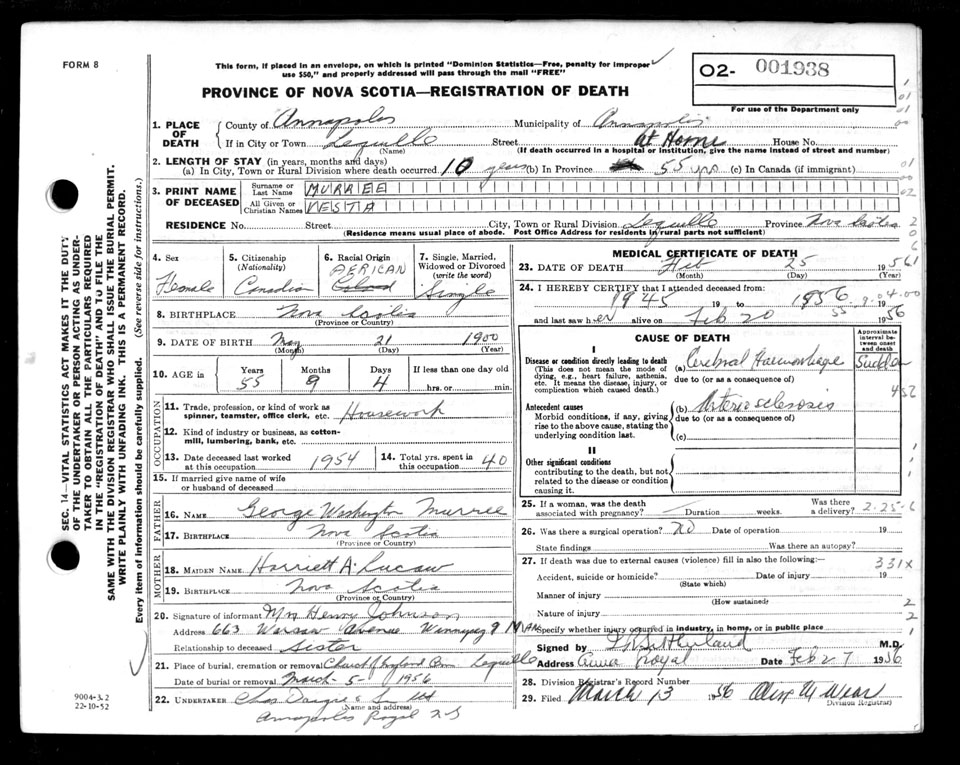 FORM 8
This form, if placed in an envelope, on which is printed "Dominion Statistics—Free, penalty for improper
use $50," and properly addressed will pass through the mail "FREE"
02- 001938
For use of the Department only
PROVINCE OF NOVA SCOTIA—REGISTRATION OF DEATH
1. PLACE OF DEATH County of Annapolis Municipality of Annapolis
If in City or Town Lequille (Name) Street At Home House No.
(If death occurred in a hospital or institution, give the name instead of street and number)
2. LENGTH OF STAY (in years, months and days)
(a) In City, Town or Rural Division where death occurred 10 years (b) In Province 55 yrs (c) In Canada (if immigrant)
3. PRINT NAME OF DECEASED Surname or Last Name MURREE
All Given or Christian Names VESTA
RESIDENCE No. Street City, Town or Rural Division Lequille Province Nova Scotia
(Residence means usual place of abode. Post Office Address for residents in rural parts not sufficient)
4. Sex Female
5. Citizenship (Nationality) Canadian
6. Racial Origin AFRICAN Colored
7. Single, Married, Widowed or Divorced (write the word) Single
8. BIRTHPLACE Nova Scotia
(Province or Country)
9. DATE OF BIRTH May 21 1900
(Month) (Day) (Year)
10. AGE in Years 55 Months 9 Days 4 If less than one day old hrs. or min.
OCCUPATION
11. Trade, profession, or kind of work as spinner, teamster, office clerk, etc. Housework
12. Kind of industry or business, as cotton-mill, lumbering, bank, etc.
13. Date deceased last worked at this occupation 1954
14. Total yrs. spent in this occupation 40
15. If married give name of wife or husband of deceased
FATHER
16. NAME George Washington Murree
17. BIRTHPLACE Nova Scotia
(Province or Country)
MOTHER
18. MAIDEN NAME Harriett A.
19. BIRTHPLACE Nova Scotia
(Province or Country)
20. Signature of informant Mrs Henry Johnson
Address 663 Warsaw Avenue Winnipeg 9 MAN
Relationship to deceased Sister
21. Place of burial, cremation or removal Church of England Cem Lequille
Date of burial or removal March - 5 - 1956
22. UNDERTAKER Chas Dargie & Son Ltd
(Name and address)
Annapolis Royal N.S
MEDICAL CERTIFICATE OF DEATH
23. DATE OF DEATH Feb 25 1956
(Month) (Day) (Year)
24. I HEREBY CERTIFY that I attended deceased from:
1945 19 to 1956 19
and last saw her alive on Feb 20 1956
CAUSE OF DEATH
Approximate interval between onset and death
I
Disease or condition directly leading to death
(This does not mean the mode of dying, e.g., heart failure, asthenia, etc. It means the disease, injury, or complication which caused death.)
(a) Cerebral Haemorrhage Sudden
due to (or as a consequence of)
Antecedent causes
Morbid conditions, if any, giving rise to the above cause, stating the underlying condition last.
(b) Arteriosclerosis
due to (or as a consequence of)
(c)
II
Other significant conditions
contributing to the death, but not related to the disease or condition causing it.
25. If a woman, was the death associated with pregnancy? Duration weeks. Was there a delivery? 2-25-6
26. Was there a surgical operation? No Date of operation 19
State findings Was there an autopsy?
27. If death was due to external causes (violence) fill in also the following: 331X
Accident, suicide or homicide? Date of injury 19
(State which)
Manner of injury
(How sustained)
Nature of injury
Specify whether injury occurred in industry, in home, or in public place
Signed by M.D.
Address Anna Royal Date Feb 27 1956
28. Division Registrar's Record Number
29. Filed March 13 1956
Division Registrar)
SEC. 14—VITAL STATISTICS ACT MAKES IT THE DUTY
OF THE UNDERTAKER OR PERSON ACTING AS UNDER-
TAKER TO OBTAIN ALL THE PARTICULARS REQUIRED
IN THE "REGISTRATION OF DEATH" AND TO FILE THE
SAME WITH THE DIVISION REGISTRAR WHO SHALL ISSUE THE BURIAL PERMIT.
WRITE PLAINLY WITH UNFADING INK. THIS IS A PERMANENT RECORD.
Every item of information should be carefully supplied. (See reverse side for instructions.)
9004-3.2
22-10-52